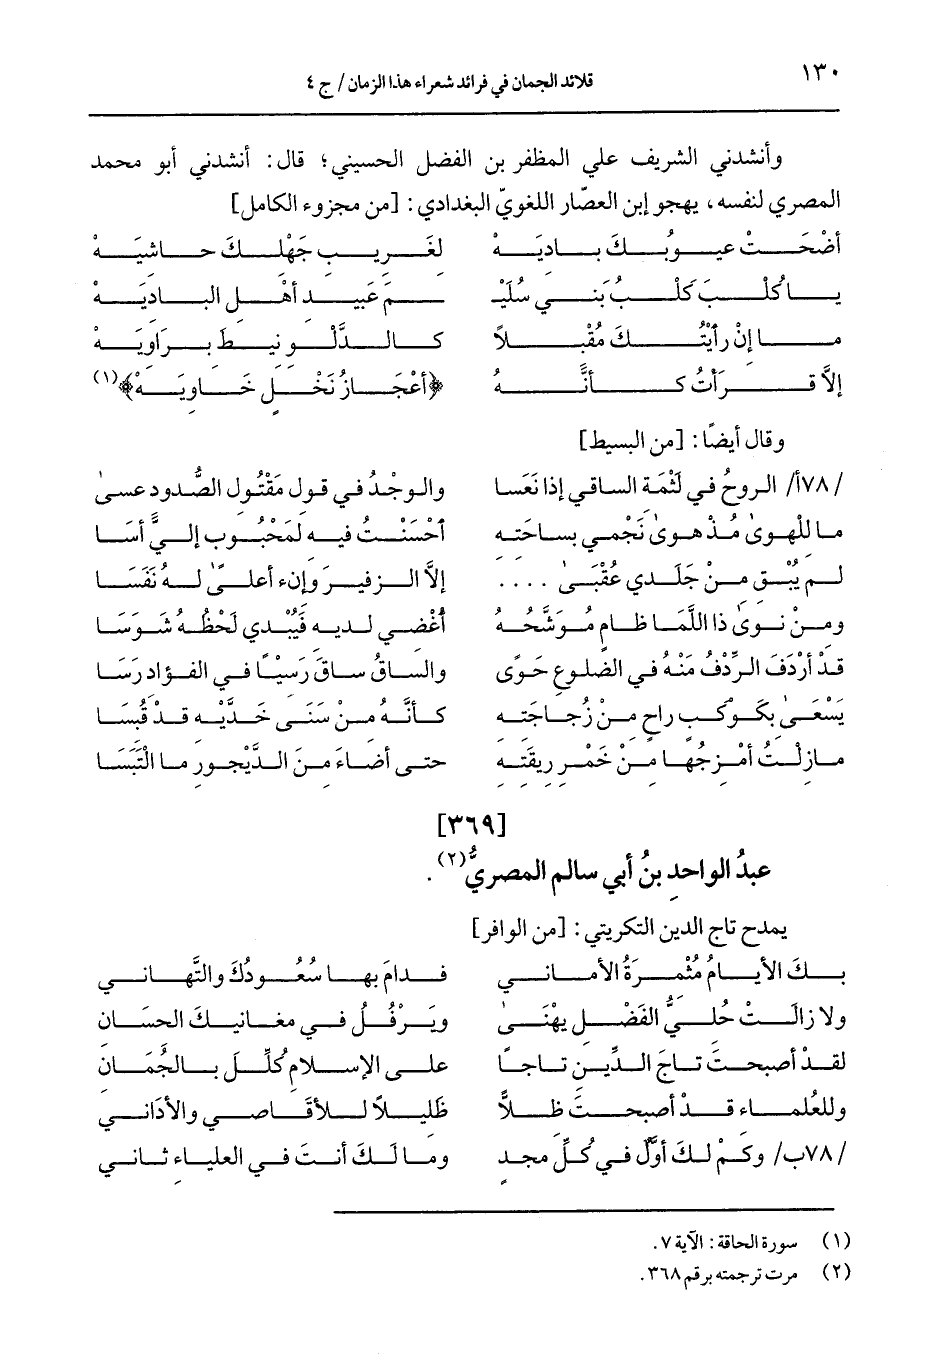 ١٣٠
قلائد الجمان في فرائد شعراء هذا الزمان / ج ٤
وأنشدني الشريف علي المظفر بن الفضل الحسيني؛ قال: أنشدني أبو محمد
المصري لنفسه، يهجو إبن العصّار اللغويّ البغدادي: [من مجزوء الكامل]
أضْحَتْ عيوبُكَ باديَهْ لغَريبِ جَهْلِكَ حاشيَهْ
يا كُلْبَ كَلْبُ بَني سُلَيْـ ـمَ عَبيدِ أهْلِ الباديَهْ
ما إنْ رأيْتُكَ مُقْبلاً كالدَّلْوِ نيطَ برَاويَهْ
إلاَّ قرَأتُ كأنَّهُ ﴿أعْجَازُ نَخْلٍ خَاويَهْ﴾(١)
وقال أيضًا: [من البسيط]
/٧٨أ/ الروحُ في لَثْمَةِ الساقي إذا نَعَسا والوجْدُ في قولِ مَقْتُولِ الصُّدودِ عسىٰ
ما للْهوىٰ مُذْ هوىٰ نَجْمي بساحَتِهِ أحْسَنْتُ فيهِ لمَحْبُوبٍ إليَّ أسَا
لم يُبْقِ منْ جَلَدي عُقْبَىٰ .... إلاَّ الزفيرَ وإنْ أعلىٰ لهُ نَفَسَا
ومنْ نوىٰ ذا اللَّمَا ظامٍ مُوَشَّحُهُ أُغْضي لديهِ فَيُبْدي لَحْظُهُ شَوَسَا
قدْ أرْدَفَ الرِّدْفُ منْهُ في الضلوعِ جَوًى والساقُ ساقَ رَسِيسًا في الفؤادِ رَسَا
يَسْعَىٰ بكَوكَبِ راحٍ منْ زُجاجَتِهِ كأنَّهُ منْ سَنَى خَدَّيْهِ قدْ قُبسَا
مازلْتُ أمْزجُها منْ خَمْرِ ريقَتِهِ حتى أضاءَ منَ الدَّيْجورِ ما الْتَبَسَا
[٣٦٩]
عبدُ الواحدِ بنُ أبي سالمِ المصريُّ(٢).
يمدح تاج الدين التكريتي: [من الوافر]
بكَ الأيامُ مُثْمِرَةُ الأماني فدامَ بها سُعُودُكَ والتَّهاني
ولا زالَتْ حُليُّ الفَضْلِ يهْنَىٰ ويَرْفُلُ في مغانيكَ الحسَانِ
لقدْ أصبحتَ تاجَ الدِّينِ تاجًا علىٰ الإسلامِ كُلِّلَ بالجُمَانِ
وللعُلماءِ قدْ أصبحتَ ظلاًّ ظَليلاً للأقاصي والأدَاني
/٧٨ب/ وكمْ لكَ أوَّلٌ في كُلِّ مجدٍ وما لَكَ أنتَ في العلياءِ ثاني
(١) سورة الحاقة: الآية ٧.
(٢) مرت ترجمته برقم ٣٦٨.